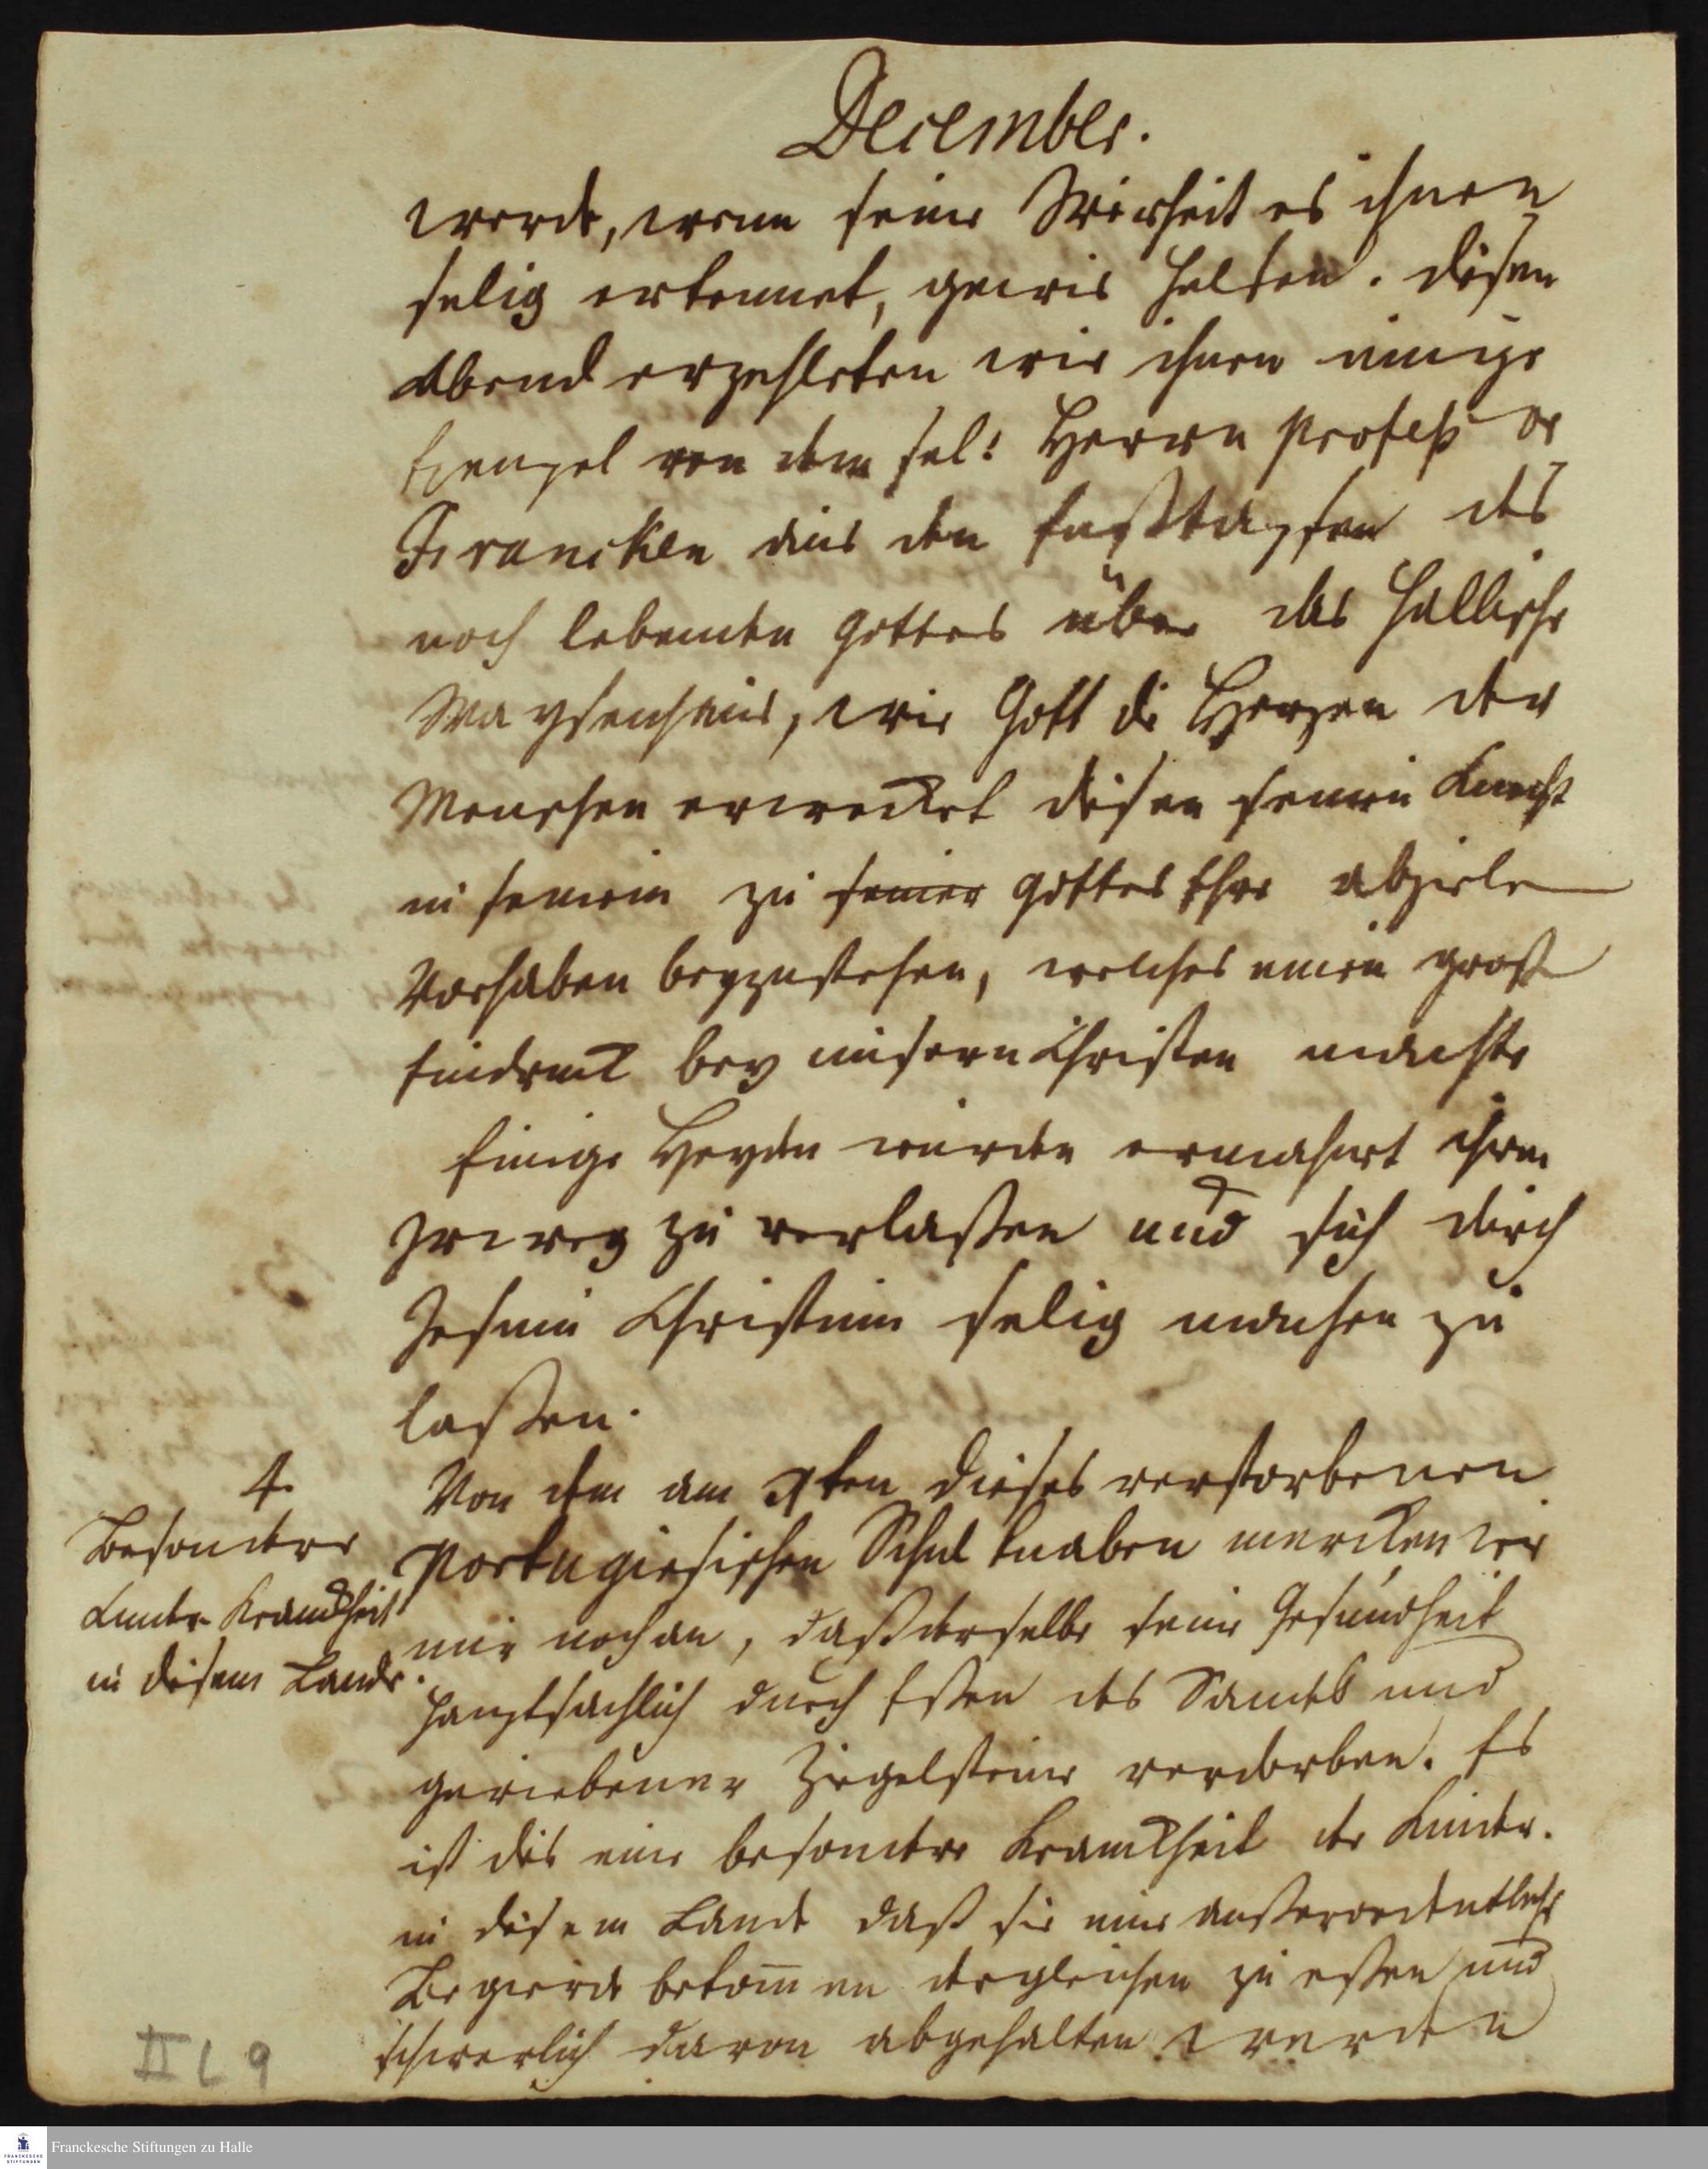 December.
werde, wenn seine Weisheit es ihnen
selig erkennet, gewis helfen. Disen
Abend erzehleten wir ihnen einige
Exempel von dem sel: Herrn Profeßor
Francken aus den Fußtapfen des
noch lebenden Gottes über das Hallische
Waysenhaus, wie Gott die Herzen der
Menschen erwecket disen seinen Knecht
in seinem zu seiner Gottes Ehre abziele
Vorhaben beyzustehen, welches einen große
Eindruck bey unsern Christen machte
Einige Heyden wurden ermahnt ihren
Irrweg zu verlaßen und sich durch
Jesum Christum selig machen zu
laßen.
4.
Besondere
Kinder Kranckheit
in disem Lande.
Von dem am ten dieses verstorbenen
Portugiesischen Schul Knaben mercken wir
nur noch an, daß derselbe seine Gesundheit
hauptsächlich durch Eßen des Sandes und
geriebener Ziegelsteine verdorben. Es
ist dis eine besondere Kranckheit der Kinder.
in disem Lande daß sie eine außerordentliche
Begierde bekom̅en dergleichen zu eßen und
schwerlich davon abgehalten werden
II L 9
Franckesche Stiftungen zu Halle
FRANCKESCHE
STIFTUNGEN